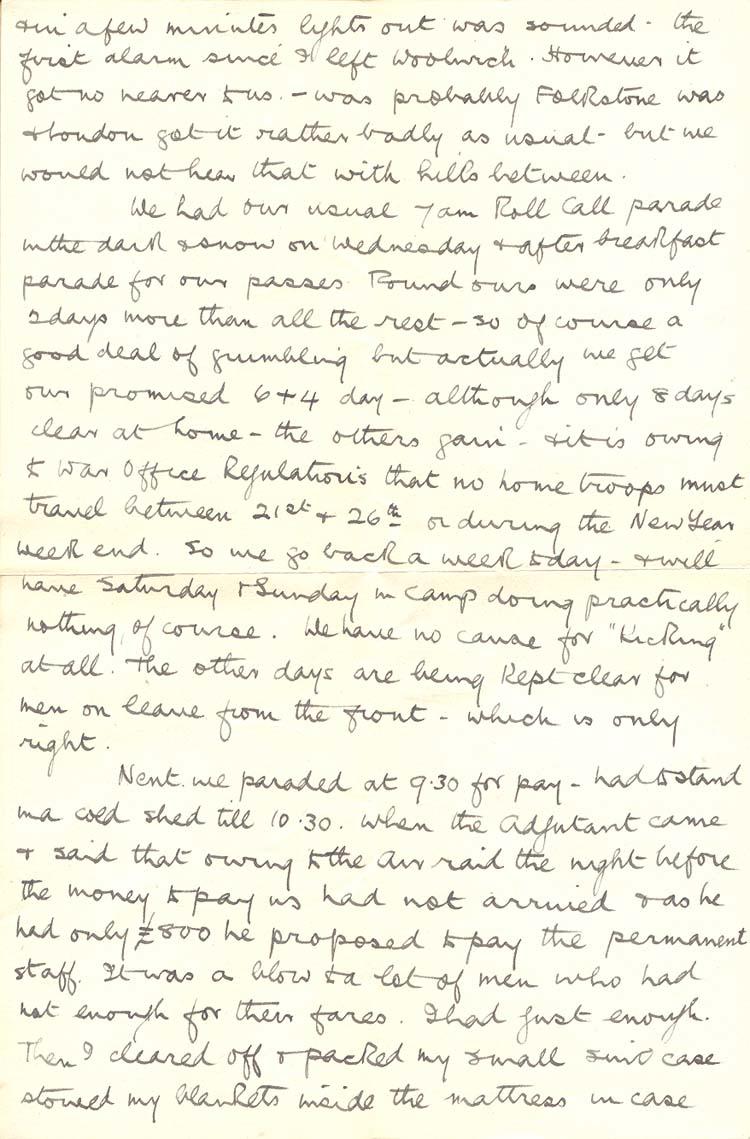 & in a few minutes lights out was sounded - the
first alarm since I left Woolwich. However it
got no nearer to us. - was probably Folkstone was
& London got it rather badly as usual - but we
would not hear that with hills between.
We had our usual 7am Roll Call parade
in the dark & snow on Wednesday & after breakfast
parade for our passes. Found ours were only
2 days more than all the rest - so of course a
good deal of grumbling but actually we get
our promised 6 + 4 day - although only 8 days
clear at home - the others gain - & it is owing
to War Office Regulations that no home troops must
travel between 21st & 26th or during the New Year
week end. So we go back a week today - & will
have Saturday & Sunday in camp doing practically
nothing, of course. We have no cause for "Kicking"
at all. The other days are being kept clear for
men on leave from the front - which is only
right.
Next we paraded at 9.30 for pay - had to stand
in a cold shed till 10.30. when the Adjutant came
& said that owing to the Air raid the night before
the money to pay us had not arrived & as he
had only £800 he proposed to pay the permanent
staff. It was a blow to a lot of men who had
not enough for their fares. I had just enough.
Then I cleared off & packed my small suit case
stowed my blankets inside the mattress in case